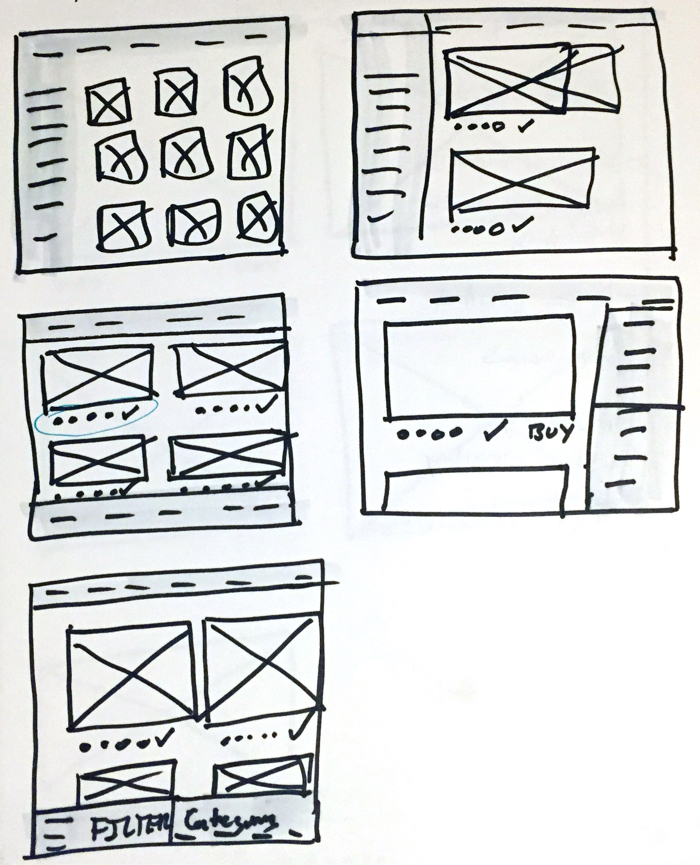 BUY
FILTER Category